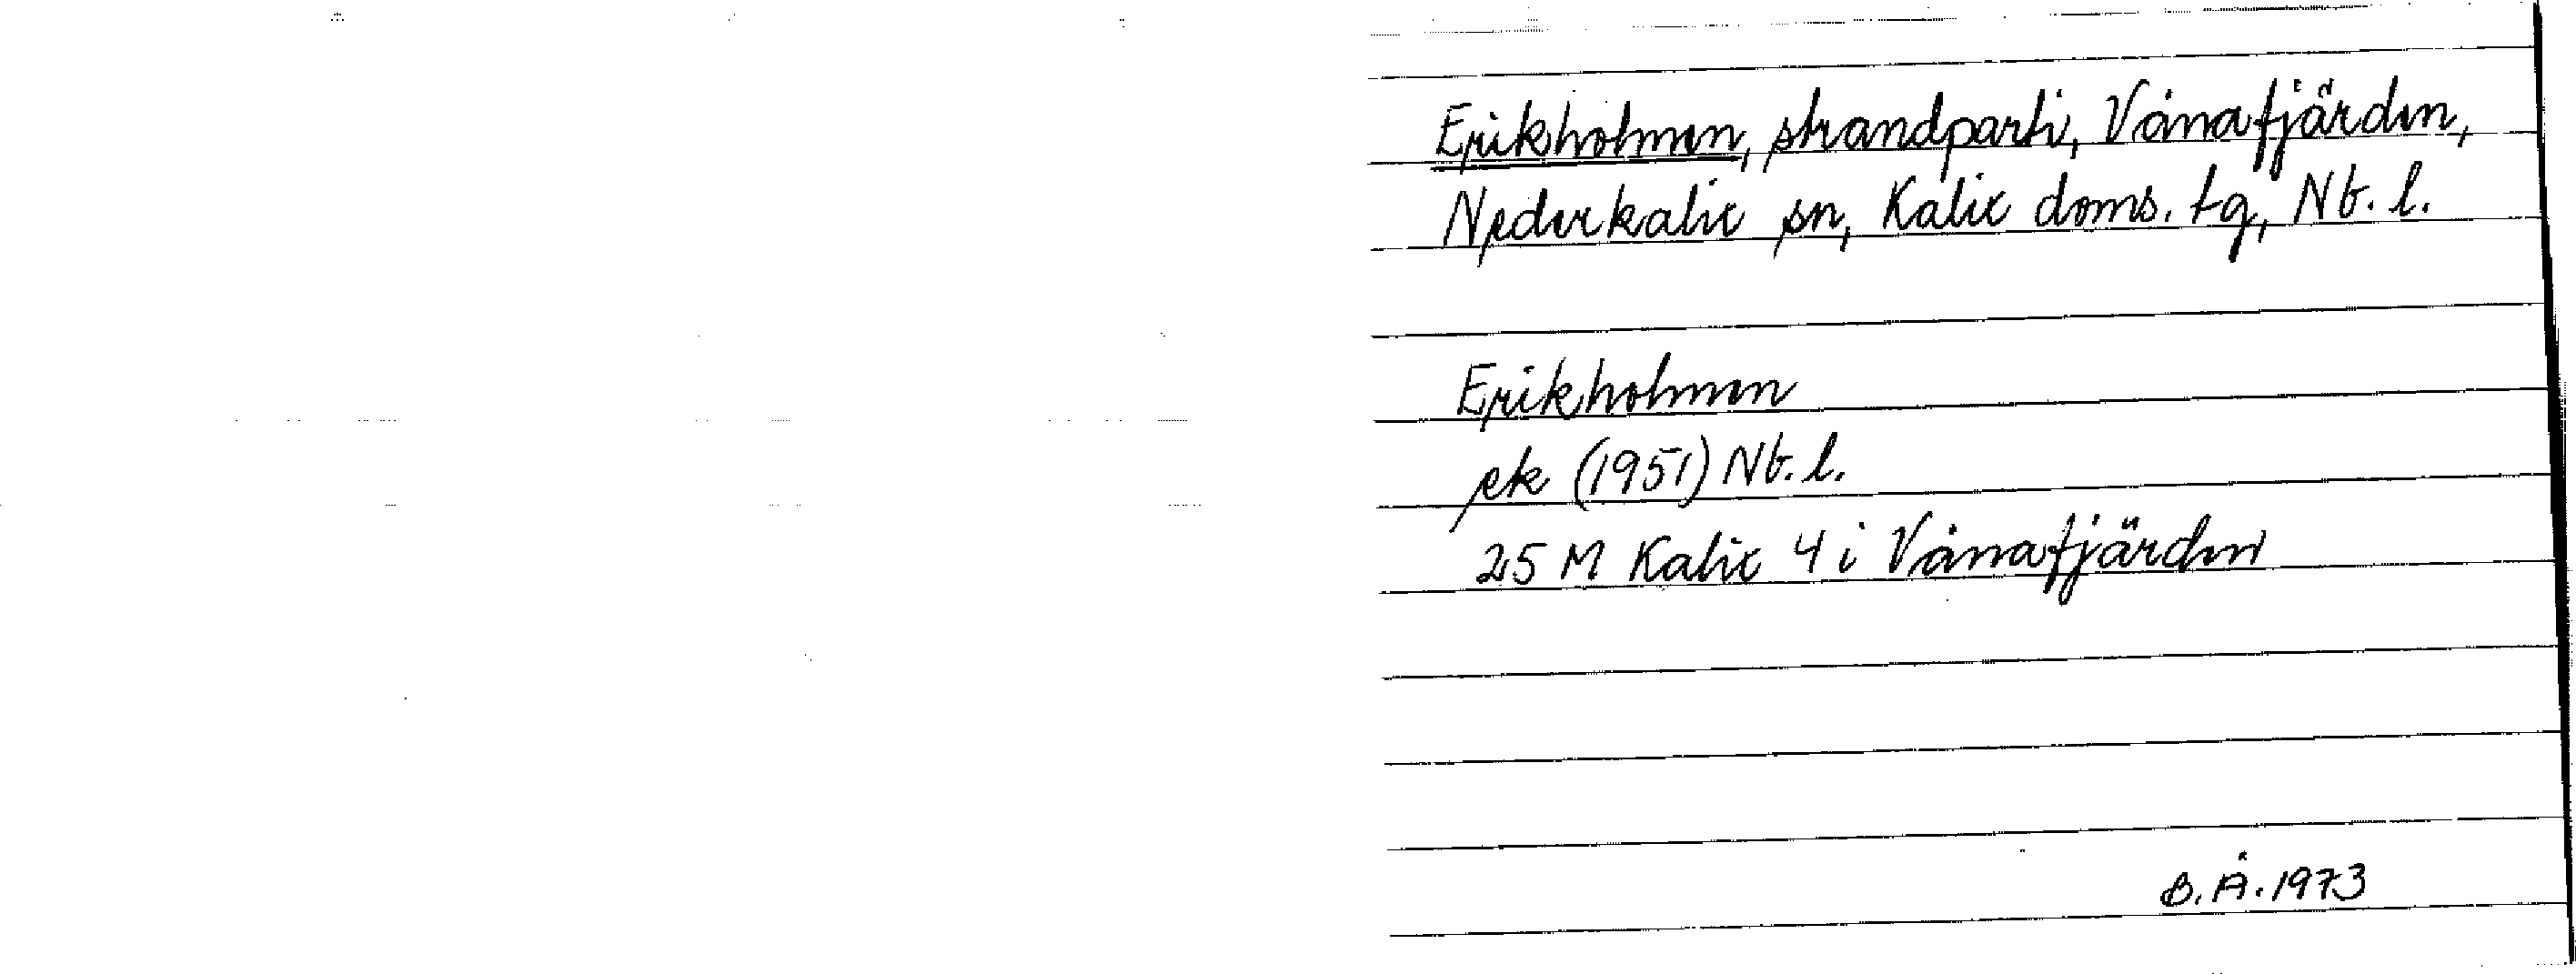 Erikholmen, strandparti, Vånafjärden,
Nederkalix sn, Kalix doms. tg, Nb. l.
Erikholmen
ek (1951) Nb. l.
25 M Kalix 4 i Vånafjärden
B. Å. 1973